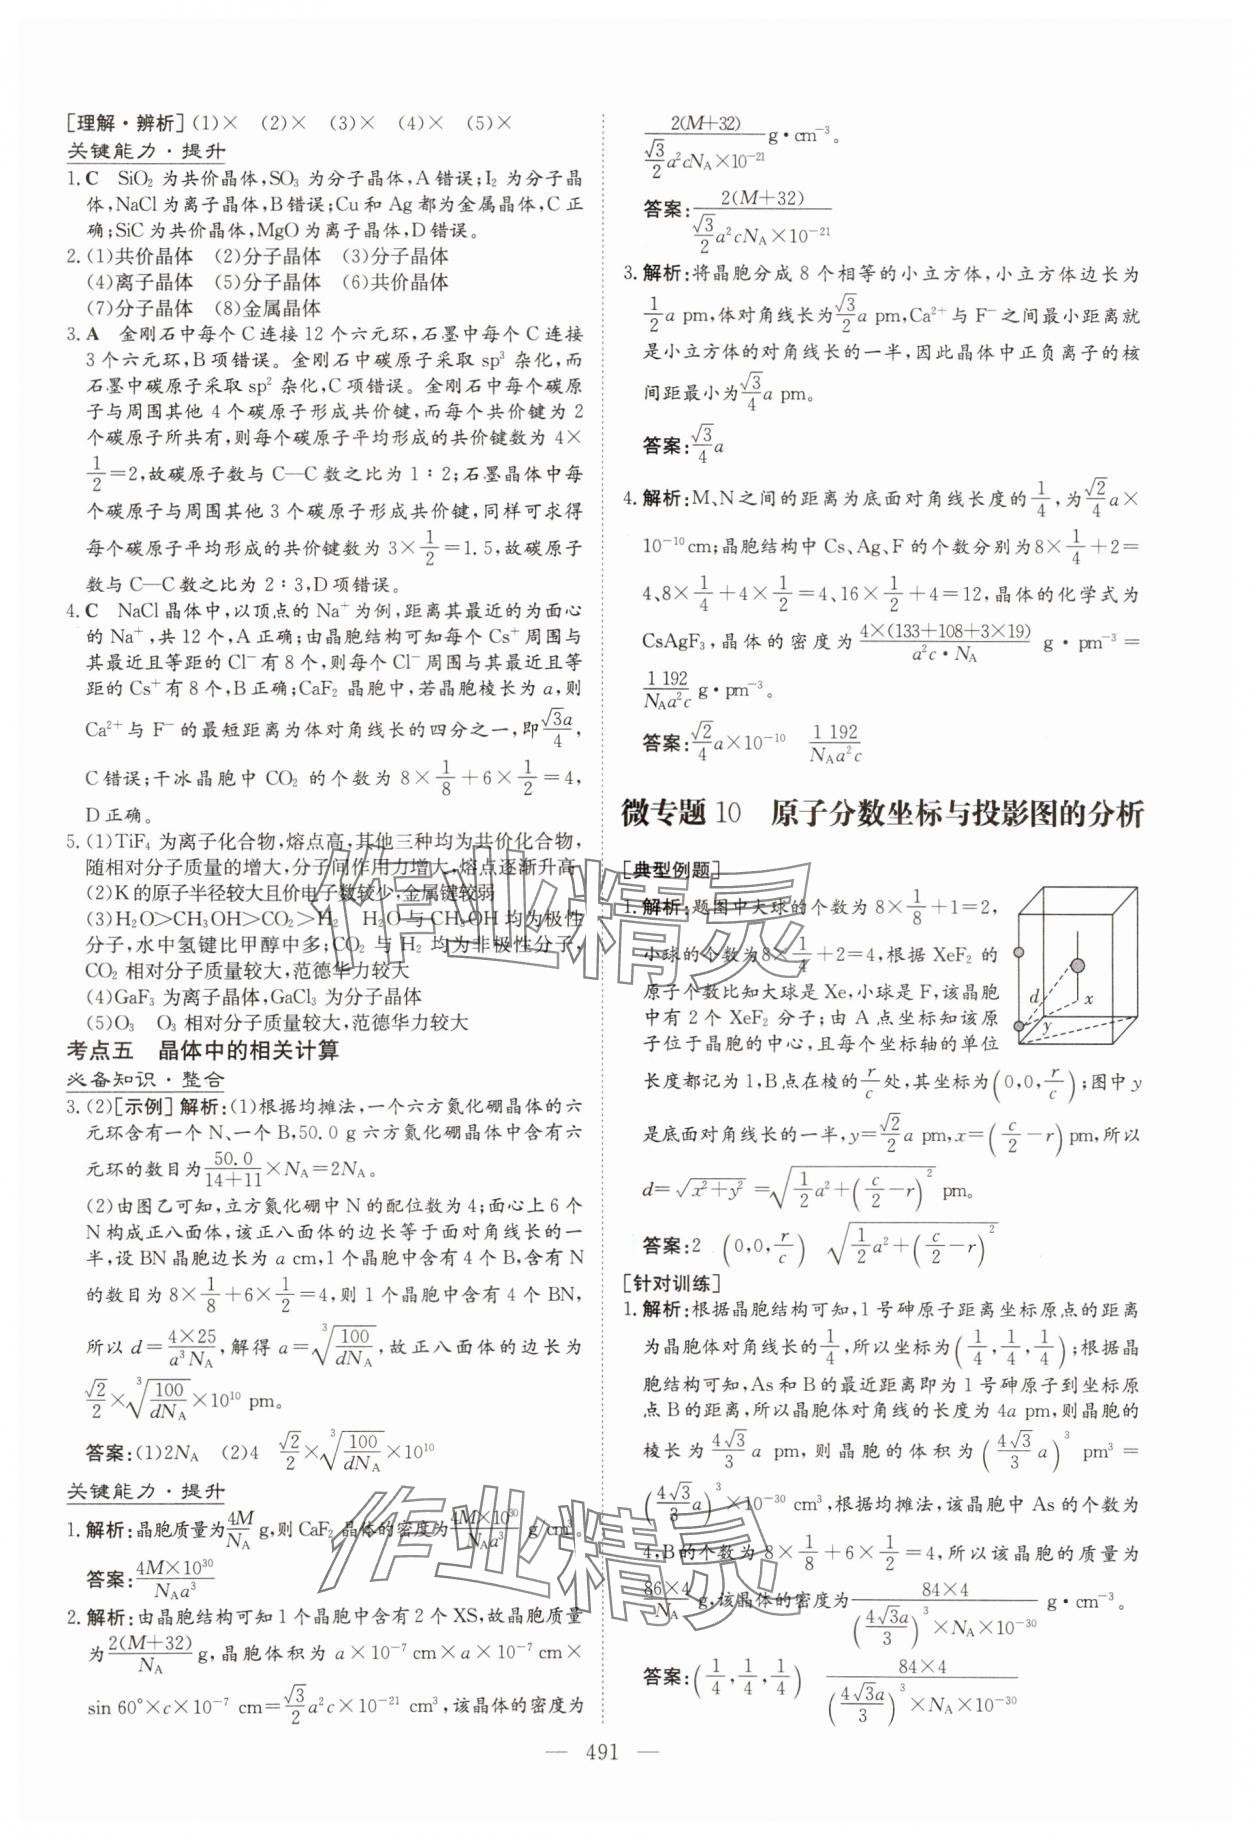 [理解·辨析](1)× (2)× (3)× (4)× (5)×
关键能力·提升
1.C SiO₂ 为共价晶体,SO₃ 为分子晶体,A错误;I₂ 为分子晶
体,NaCl为离子晶体,B错误;Cu和Ag都为金属晶体,C正
确;SiC为共价晶体,MgO为离子晶体,D错误。
2.(1)共价晶体 (2)分子晶体 (3)分子晶体
(4)离子晶体 (5)分子晶体 (6)共价晶体
(7)分子晶体 (8)金属晶体
3.A 金刚石中每个C连接12个六元环,石墨中每个C连接
3个六元环,B项错误。金刚石中碳原子采取 sp³ 杂化,而
石墨中碳原子采取 sp² 杂化,C项错误。金刚石中每个碳原
子与周围其他 4 个碳原子形成共价键,而每个共价键为 2
个碳原子所共有,则每个碳原子平均形成的共价键数为 4×
1/2=2,故碳原子数与 C—C数之比为1∶2;石墨晶体中每
个碳原子与周围其他 3 个碳原子形成共价键,同样可求得
每个碳原子平均形成的共价键数为 3×1/2=1.5,故碳原子
数与 C—C数之比为 2∶3,D项错误。
4.C NaCl晶体中,以顶点的 Na⁺为例,距离其最近的为面心
的 Na⁺,共 12个,A正确;由晶胞结构可知每个 Cs⁺周围与
其最近且等距的 Cl⁻有 8个,则每个 Cl⁻周围与其最近且等
距的 Cs⁺有 8个,B正确;CaF₂ 晶胞中,若晶胞棱长为 a,则
Ca²⁺与 F⁻的最短距离为体对角线长的四分之一,即√3a/4,
C错误;干冰晶胞中 CO₂ 的个数为 8×1/8+6×1/2=4,
D正确。
5.(1)TiF₄ 为离子化合物,熔点高,其他三种均为共价化合物,
随相对分子质量的增大,分子间作用力增大,熔点逐渐升高
(2)K的原子半径较大且价电子数较少,金属键较弱
(3)H₂O>CH₃OH>CO₂>H₂ H₂O与CH₃OH均为极性
分子,水中氢键比甲醇中多;CO₂ 与 H₂ 均为非极性分子,
CO₂ 相对分子质量较大,范德华力较大
(4)GaF₃ 为离子晶体,GaCl₃ 为分子晶体
(5)O₃ O₃ 相对分子质量较大,范德华力较大
考点五 晶体中的相关计算
必备知识·整合
3.(2)[示例]解析:(1)根据均摊法,一个六方氮化硼晶体的六
元环含有一个N、一个B,50.0 g六方氮化硼晶体中含有六
元环的数目为50.0/(14+11)×N_A=2N_A。
(2)由图乙可知,立方氮化硼中 N的配位数为4;面心上6个
N构成正八面体,该正八面体的边长等于面对角线长的一
半,设 BN晶胞边长为 a cm,1个晶胞中含有 4个 B,含有 N
的数目为 8×1/8+6×1/2=4,则 1个晶胞中含有 4 个 BN,
所以 d=4×25/(a³N_A),解得 a=∛(100/(dN_A)),故正八面体的边长为
√2/2×∛(100/(dN_A))×10¹⁰ pm。
答案:(1)2N_A (2)4 √2/2×∛(100/(dN_A))×10¹⁰
关键能力·提升
1.解析:晶胞质量为4M/N_A g,则 CaF₂ 晶体的密度为4M×10³⁰/(N_Aa³) g/cm³。
答案:4M×10³⁰/(N_Aa³)
2.解析:由晶胞结构可知1个晶胞中含有2个XS,故晶胞质量
为2(M+32)/N_A g,晶胞体积为 a×10⁻⁷ cm×a×10⁻⁷ cm×
sin 60°×c×10⁻⁷ cm=√3/2a²c×10⁻²¹ cm³,该晶体的密度为
2(M+32)/(√3/2a²cN_A×10⁻²¹) g·cm⁻³。
答案:2(M+32)/(√3/2a²cN_A×10⁻²¹)
3.解析:将晶胞分成 8 个相等的小立方体,小立方体边长为
1/2a pm,体对角线长为√3/2a pm,Ca²⁺与 F⁻之间最小距离就
是小立方体的对角线长的一半,因此晶体中正负离子的核
间距最小为√3/4a pm。
答案:√3/4a
4.解析:M、N之间的距离为底面对角线长度的1/4,为√2/4a×
10⁻¹⁰cm;晶胞结构中 Cs、Ag、F 的个数分别为8×1/4+2=
4、8×1/4+4×1/2=4、16×1/2+4=12,晶体的化学式为
CsAgF₃,晶体的密度为4×(133+108+3×19)/(a²c·N_A) g·pm⁻³=
1 192/(N_Aa²c) g·pm⁻³。
答案:√2/4a×10⁻¹⁰ 1 192/(N_Aa²c)
微专题 10 原子分数坐标与投影图的分析
[典型例题]
1.解析:题图中大球的个数为 8×1/8+1=2,
小球的个数为8×1/4+2=4,根据 XeF₂ 的
原子个数比知大球是 Xe,小球是F,该晶胞
中有 2 个 XeF₂ 分子;由 A 点坐标知该原
子位于晶胞的中心,且每个坐标轴的单位
d
x
y
长度都记为1,B点在棱的r/c处,其坐标为(0,0,r/c);图中 y
是底面对角线长的一半,y=√2/2a pm,x=(c/2−r)pm,所以
d=√(x²+y²)=√(1/2a²+(c/2−r)²) pm。
答案:2 (0,0,r/c) √(1/2a²+(c/2−r)²)
[针对训练]
1.解析:根据晶胞结构可知,1号砷原子距离坐标原点的距离
为晶胞体对角线长的1/4,所以坐标为(1/4,1/4,1/4);根据晶
胞结构可知,As和 B的最近距离即为 1号砷原子到坐标原
点 B的距离,所以晶胞体对角线的长度为 4a pm,则晶胞的
棱长为4√3/3a pm,则晶胞的体积为(4√3/3a)³ pm³=
(4√3/3a)³×10⁻³⁰ cm³,根据均摊法,该晶胞中 As 的个数为
4,B的个数为 8×1/8+6×1/2=4,所以该晶胞的质量为
86×4/N_A g,该晶体的密度为84×4/((4√3a/3)³×N_A×10⁻³⁰) g·cm⁻³。
答案:(1/4,1/4,1/4) 84×4/((4√3a/3)³×N_A×10⁻³⁰)
— 491 —
作业精灵
作业精灵